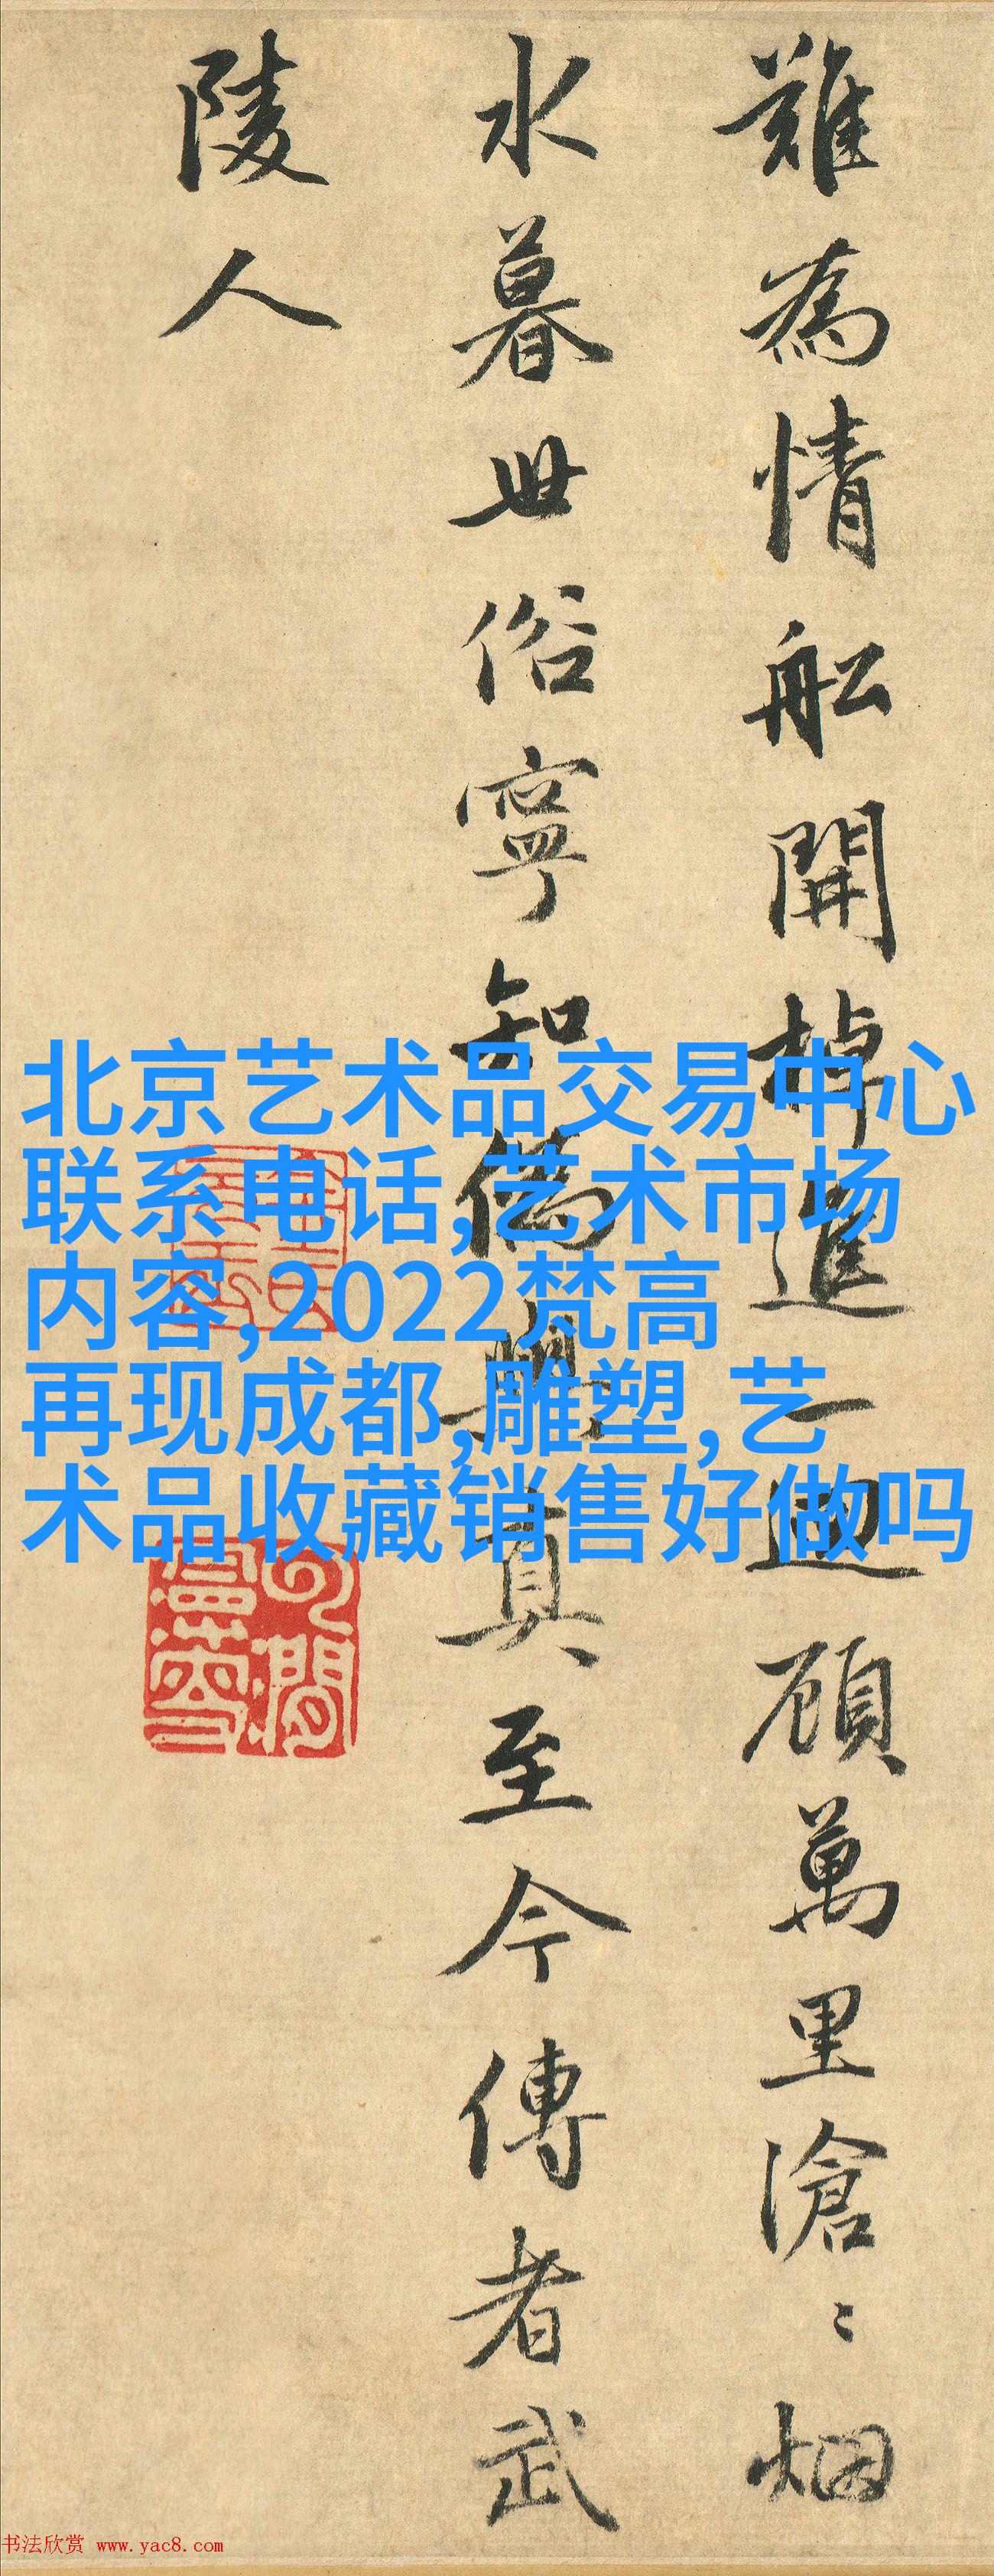 難為情舩開棹進一迴顧萬里滄〻烟
水暮世俗寧知偽與真至今傳者武
陵人
北京艺术品交易中心
联系电话,艺术市场
内容,2022梵高
再现成都,雕塑,艺
术品收藏销售好做吗
书法欣赏 www.yac8.com